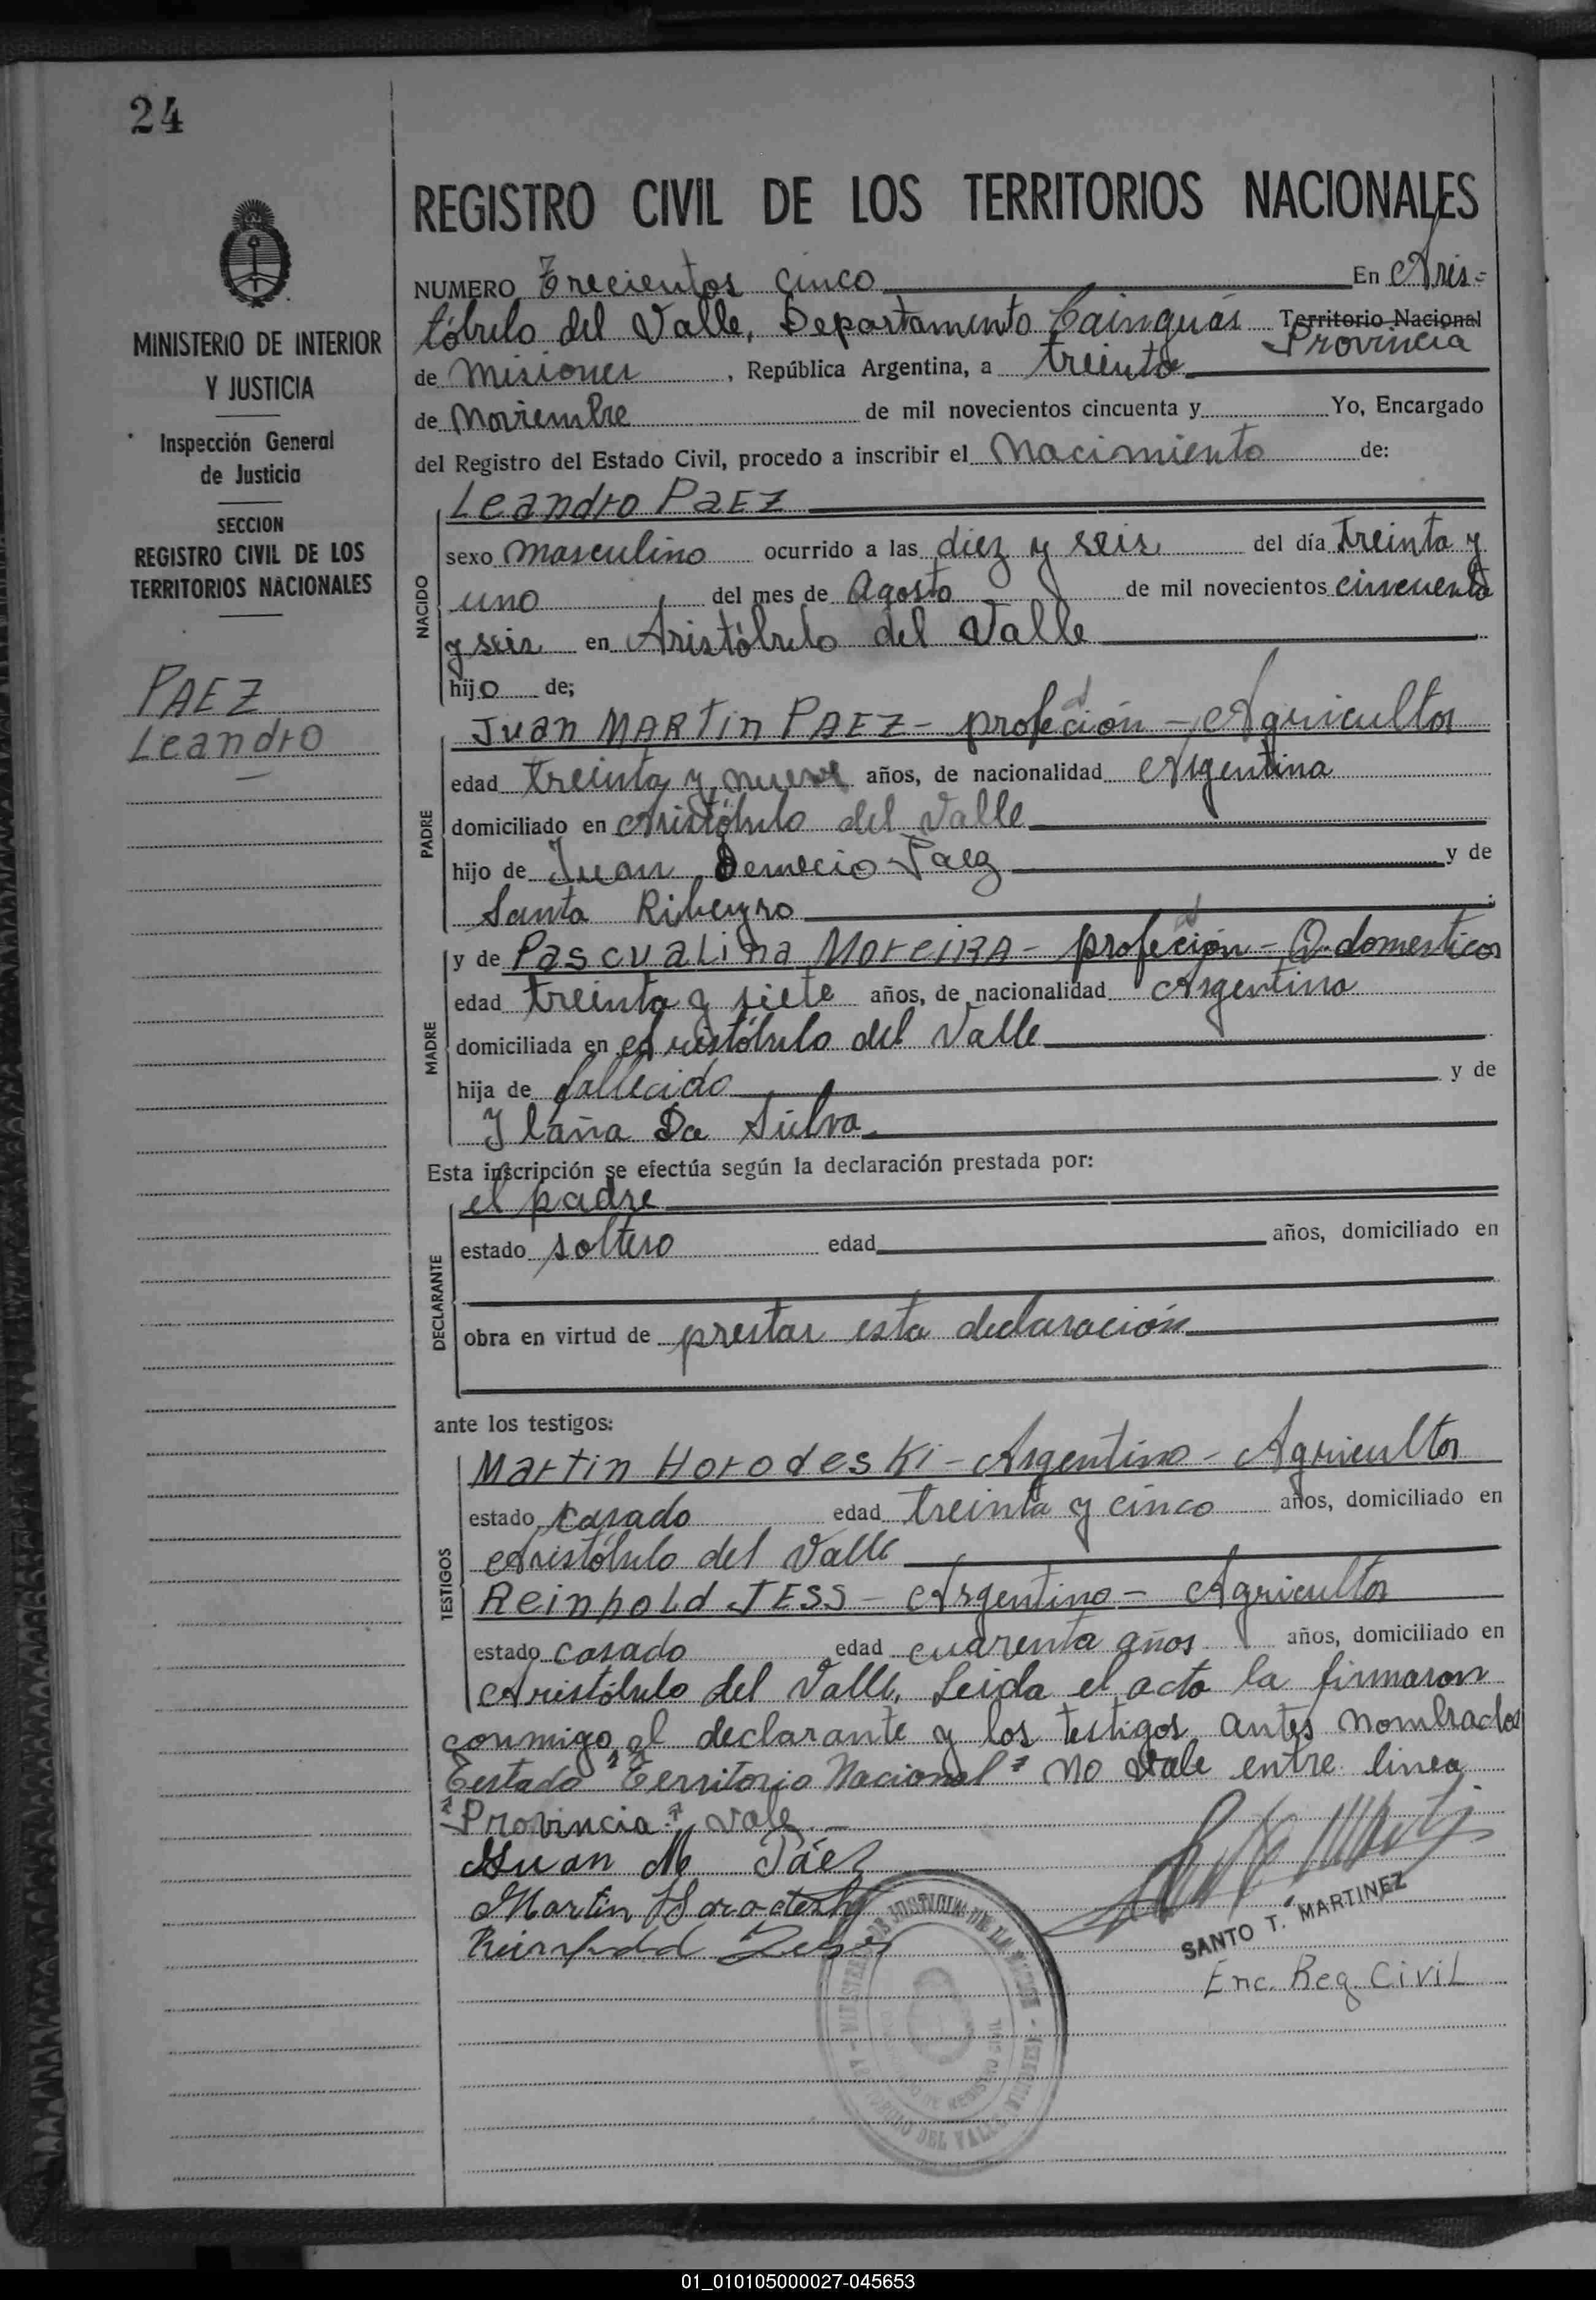 24
REGISTRO CIVIL DE LOS TERRITORIOS NACIONALES
MINISTERIO DE INTERIOR
Y JUSTICIA
Inspección General
de Justicia
SECCION
REGISTRO CIVIL DE LOS
TERRITORIOS NACIONALES
PAEZ
Leandro
NUMERO Trecientos cinco En Aris=
tóbulo del Valle, Departamento Cainguás Territorio Nacional
Provincia
de Misiones, República Argentina, a treinta
de Noviembre de mil novecientos cincuenta y Yo, Encargado
del Registro del Estado Civil, procedo a inscribir el Nacimiento de:
NACIDO
Leandro PaEZ
sexo masculino ocurrido a las diez y seis del día treinta y
uno del mes de Agosto de mil novecientos cincuenta
y seis en Aristóbulo del Valle
hijo de;
PADRE
Juan MARTin PAEZ - profeción - Agricultor
edad treinta y nueve años, de nacionalidad Argentina
domiciliado en Aristóbulo del Valle
hijo de Juan Demecio Paez y de
Santa Ribeyro
MADRE
y de PascuaLina MoreiRA - profeción - Q. domesticos
edad treinta y siete años, de nacionalidad Argentina
domiciliada en Aristóbulo del Valle
hija de fallecido y de
Da Silva
Esta inscripción se efectúa según la declaración prestada por:
DECLARANTE
el padre
estado soltero edad años, domiciliado en
obra en virtud de prestar esta declaración
ante los testigos:
TESTIGOS
Martin Horodeski - Argentino - Agricultor
estado casado edad treinta y cinco años, domiciliado en
Aristóbulo del Valle
ReinhoLd JESS - Argentino - Agricultor
estado casado edad cuarenta años años, domiciliado en
Aristóbulo del Valle, Leida el acta la firmaron
conmigo el declarante y los testigos antes nombrados
Testado "Territorio Nacional" no vale entre linea
"Provincia" vale
Juan M Páez
Martin
SANTO T. MARTINEZ
Enc. Reg. CiviL
01_010105000027-045653